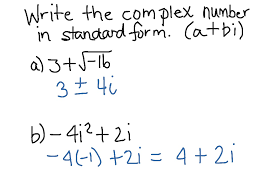 Write the complex number
in standard form. (a+bi)
a) 3+√-16
3 ± 4i
b) -4i²+2i
-4(-1) +2i = 4+2i